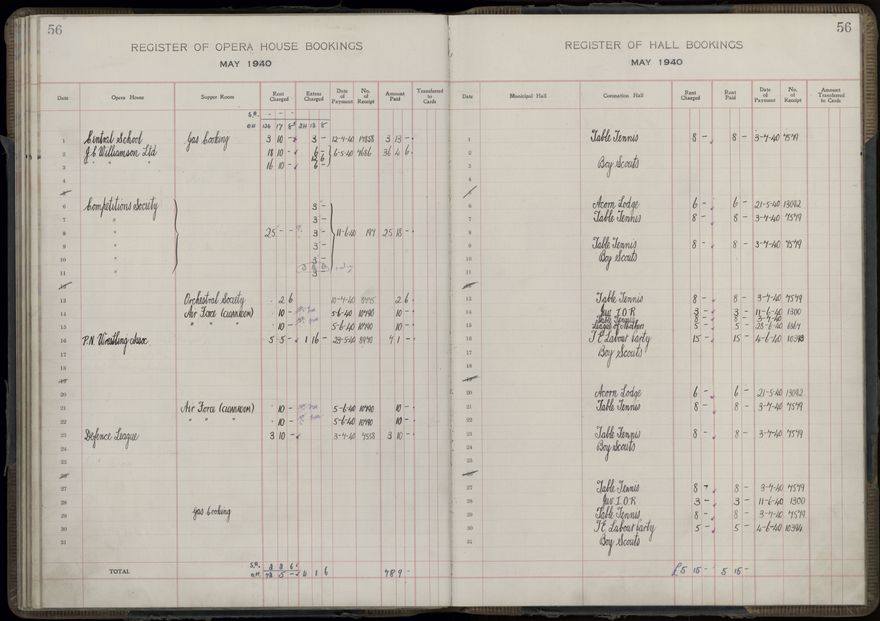 56
REGISTER OF OPERA HOUSE BOOKINGS
MAY 1940
Date Opera House Supper Room Rent Charged Extras Charged Date of Payment No. of Receipt Amount Paid Transferred to Cards
S.R. - - -
O.H.
1 Central School Gas Cooking 3 10 - 3 - 12-4-40 3 13 -
2 J.C. Williamson Ltd 18 10 - 6 - 6-5-40 7686 36 4 6
3 " " " 16 10 - 6 -
4
5
6 Competitions Society 3 -
7 " 3 -
8 " 25 - - 3 - 11-6-40 197 25 18 -
9 " 3 -
10 " 3 -
11 " 3 -
12
13 Orchestral Society 2 6 10-4-40 2 6
14 Air Force (CLOAKROOM) 10 - 5-6-40 10490 10 -
15 " " " 10 - 5-6-40 10490 10 -
16 P.N. Wrestling Assoc. 5 5 - 1 16 - 23-5-40 8940 7 1 -
17
18
19
20
21 Air Force (CLOAKROOM) 10 - 5-6-40 10490 10 -
22 " " " 10 - 5-6-40 10490 10 -
23 Defence League 3 10 - 3-4-40 4558 3 10 -
24
25
26
27
28
29 Gas Cooking
30
31
TOTAL S.R. 2 2 6
O.H. 72 5 - 4 1 6 78 9 -
56
REGISTER OF HALL BOOKINGS
MAY 1940
Date Municipal Hall Coronation Hall Rent Charged Rent Paid Date of Payment No. of Receipt Amount Transferred to Cards
1 Table Tennis 8 - 8 - 3-7-40 7579
2
3 Boy Scouts
4
5
6 Acorn Lodge 6 - 6 - 21-5-40 13092
7 Table Tennis 8 - 8 - 3-7-40 7579
8
9 Table Tennis 8 - 8 - 3-7-40 7579
10 Boy Scouts
11
12
13 Table Tennis 8 - 8 - 3-7-40 7579
14 Juv. I.O.R 3 - 3 - 11-6-40 1300
15 Table Tennis 8 - 8 - 3-7-40
League of Mothers 5 - 5 - 28-6-40 1867
16 Labour Party 15 - 15 - 4-6-40 10393
17 Boy Scouts
18
19
20 Acorn Lodge 6 - 6 - 21-5-40 13092
21 Table Tennis 8 - 8 - 3-7-40 7579
22
23 Table Tennis 8 - 8 - 3-7-40 7579
24 Boy Scouts
25
26
27 Table Tennis 8 - 8 - 3-7-40 7579
28 Juv. I.O.R 3 - 3 - 11-6-40 1300
29 Table Tennis 8 - 8 - 3-7-40 7579
30 Labour Party 5 - 5 - 4-6-40 10394
31 Boy Scouts
£5 15 - 5 15 -